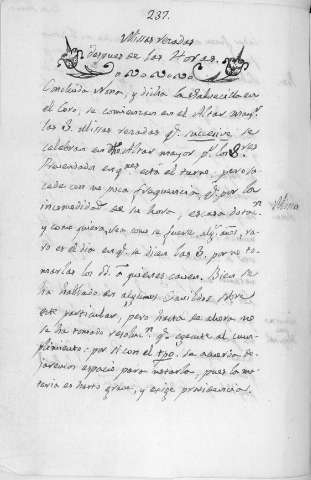 237.
Missas rezadas
despues de las Horas.
Concluida Nona, y dicha la
el Coro, se comienzan en el Altar may.r
las 3. Missas rezadas q.e succesive se
celebran en Altar mayor p.r los S.res
Prevendados en q.nes está el turno: pero su-
cede con no poca frequencia, q.e por la
incomodidad de la hora, escasa dotac.n
y como quiera, sea como se fuere alg.s años, ra-
ro es el dia en q.e se dicen las 3. por no to-
marlas los S.res a quienes caven. Bien se
ha hablado en algunos Cavildos sobre
este particular, pero hasta de ahora no
se ha tomado resoluc.n q.e egecute al cum-
plimiento: por si con el tpo. se acuerda de-
jaremos espacio para notarlo, pues la ma-
teria es harto grave, y exige providencia.